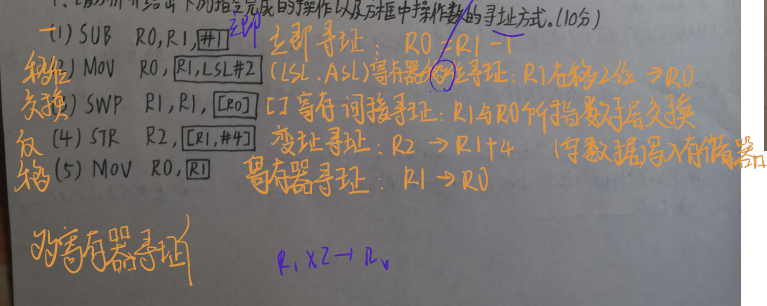 1、请分析并给出下列指令完成的操作以及方框中操作数的寻址方式。(10分)
(1) SUB R0,R1,#1 立即 立即寻址: R0=R1-1
(2) MOV R0,R1,LSL#2 (LSL、ASL)寄存器移位寻址: R1左移2位→R0
(3) SWP R1,R1,[R0] []寄存间接寻址: R1与R0所指数字层交换
(4) STR R2,[R1,#4] 变址寻址: R2→R1+4 (字数据写入存储器
(5) MOV R0,R1 寄存器寻址: R1→R0
移位
交换
反
移
为寄存器寻址
R1×2→R